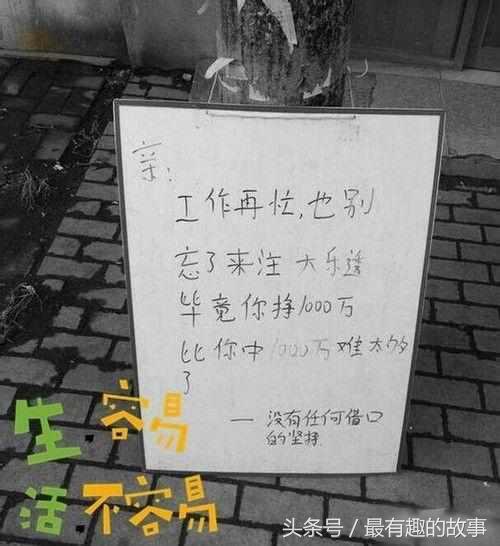 亲:
工作再忙,也别
忘了来注 大乐透
毕竟你挣1000万
比你中1000万难太多
了
— 没有任何借口
的坚持
生容易
活不容易
头条号/最有趣的故事